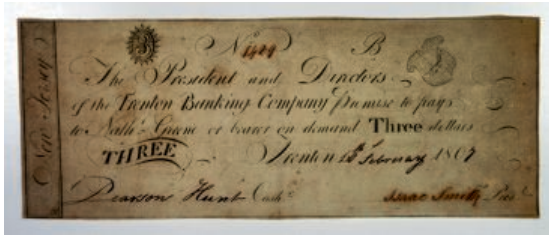 New Jersey
3 No. 1404 B 3
The President and Directors
of the Trenton Banking Company Promise to pay
to Nathl. Greene or bearer on demand Three dollars
THREE Trenton February 1807
Pearson Hunt Cashr. Isaac Smith Prest.